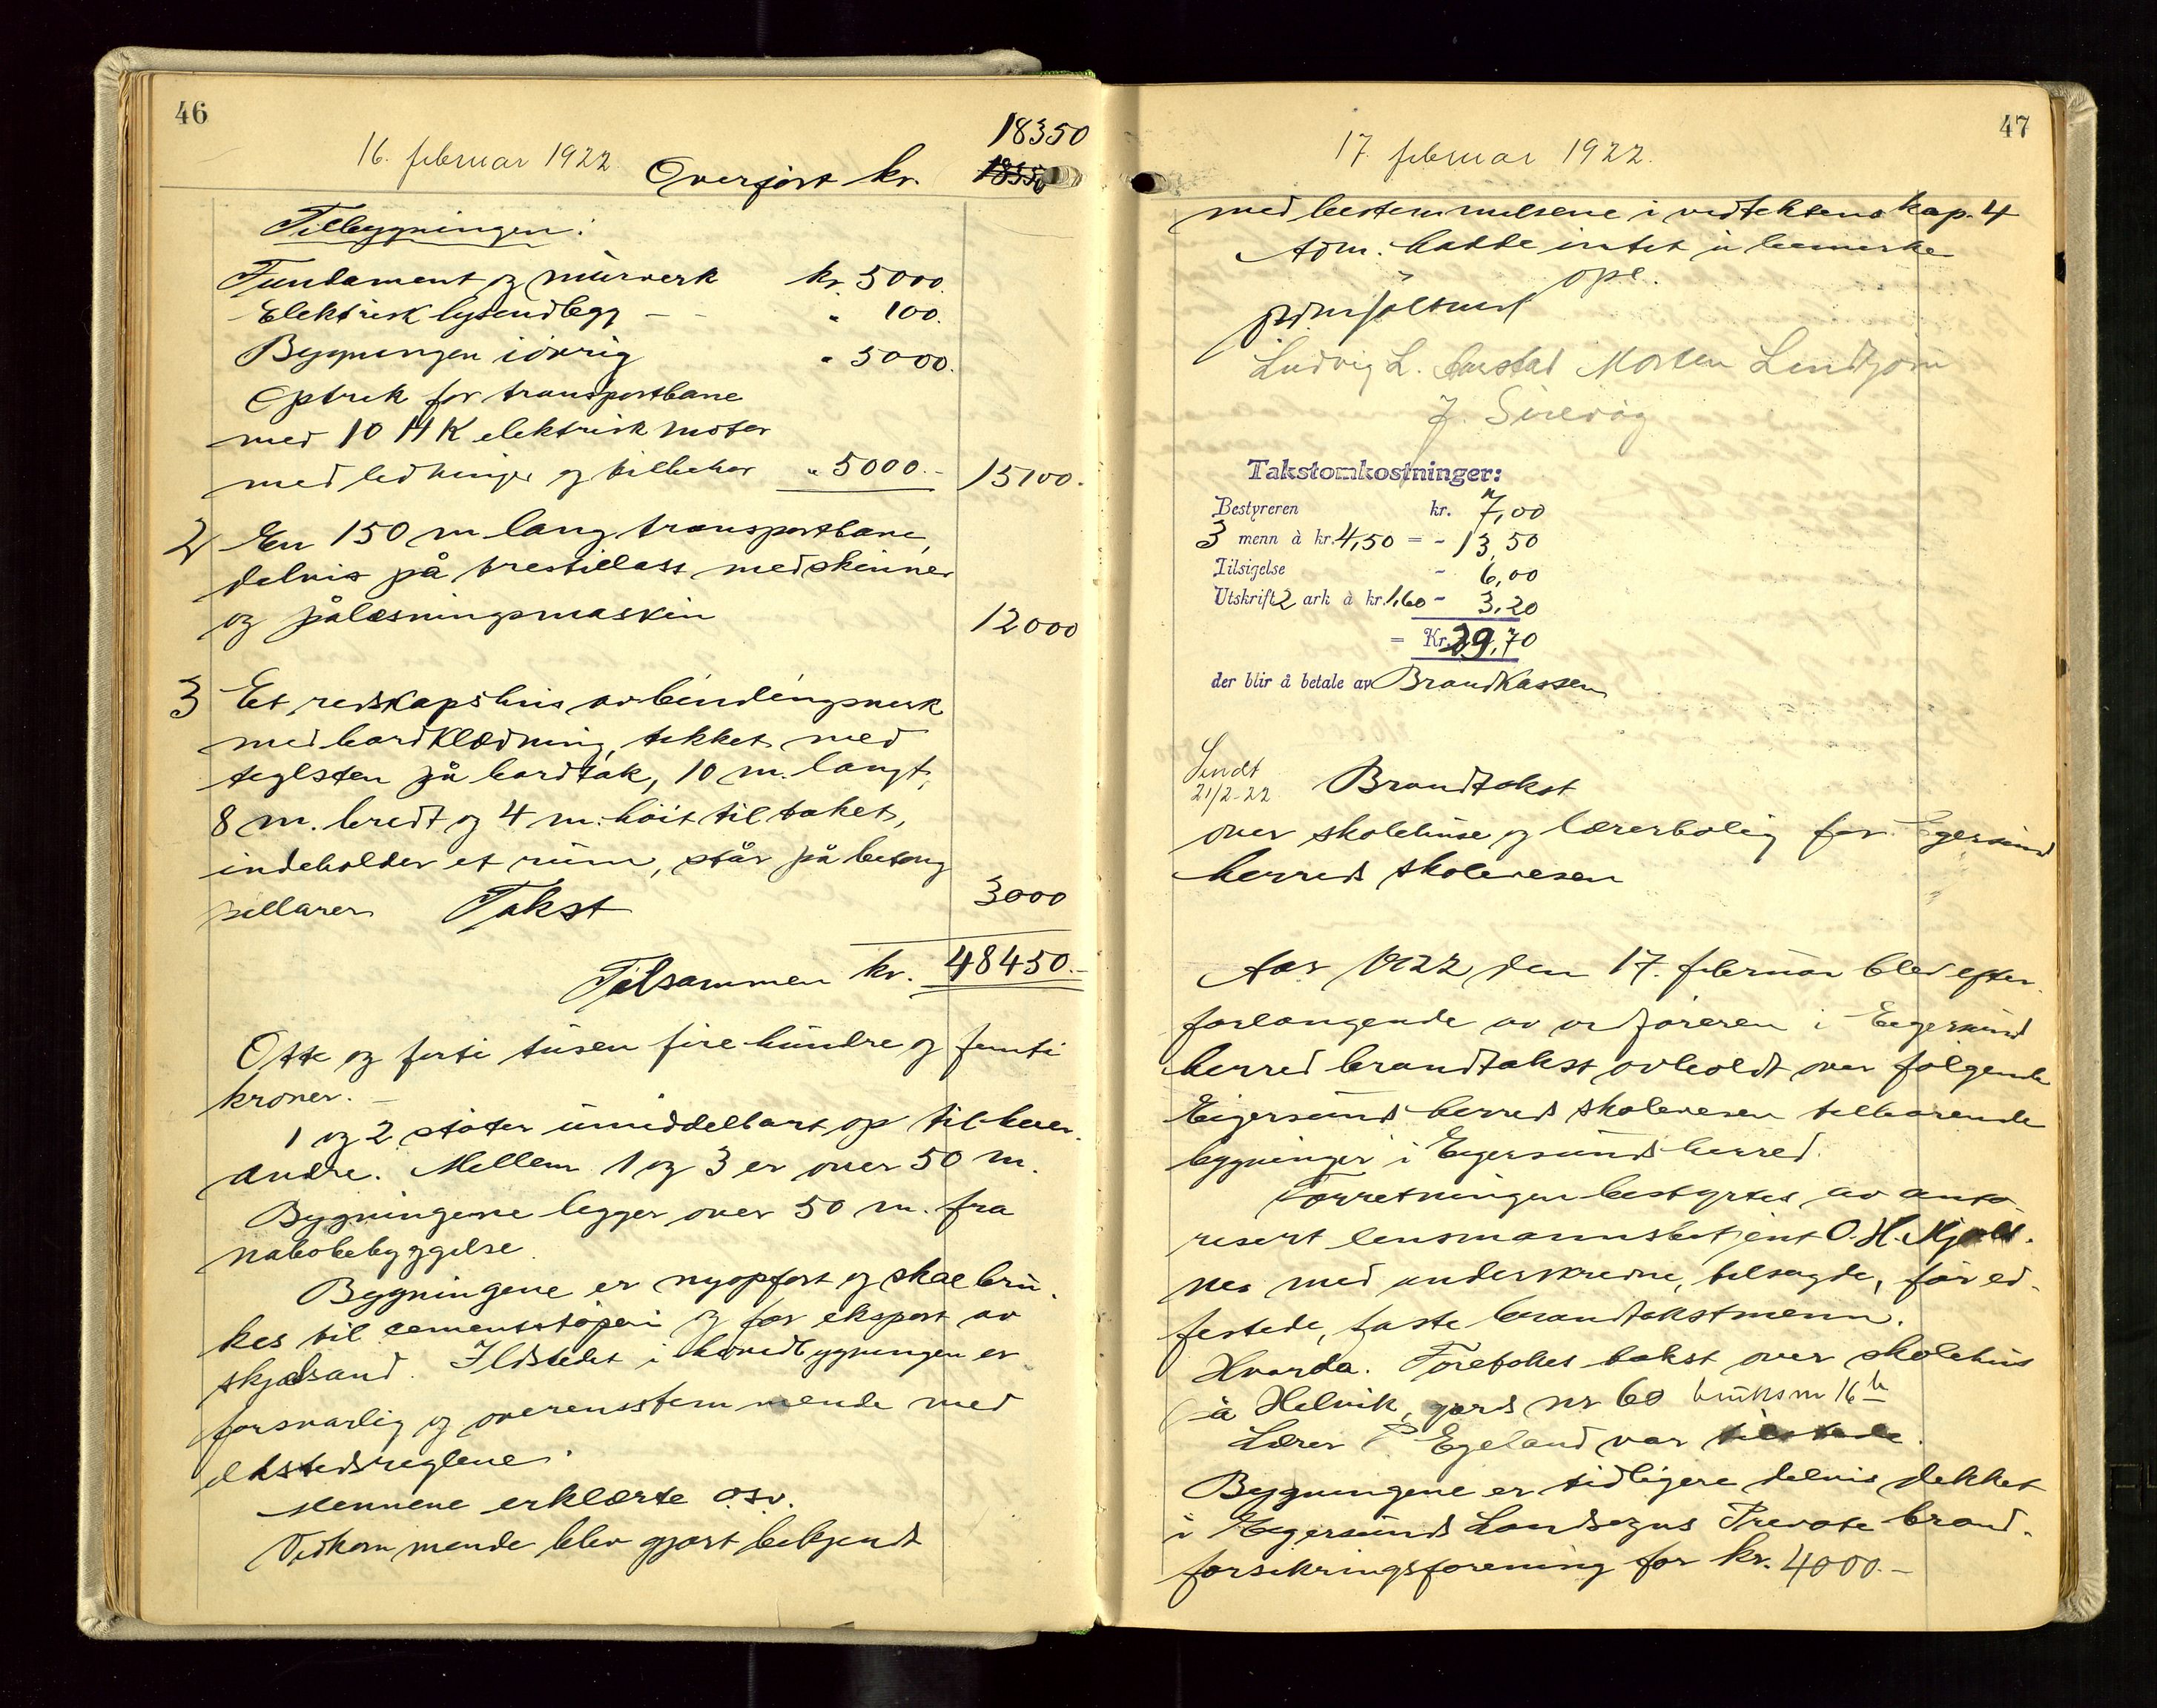 46
16. februar 1922
18350
Overført kr.
Tilbygningen:
Fundament og murverk kr. 5000.
Elektrisk lysendlegg - - " 100.
Bygningen iøvrig " 5000.
Optrek for transportbane
med 10 HK elektrisk motor
med ledninger og tilbehør " 5000.- 15100.
2 En 150 m lang transportbane,
delvis på trestillass med skinner
og pålesningsmaskin 12000
3 Et redskapshus av bindingsverk
med bordklædning, tekket med
teglsten på bordtak, 10 m. langt,
8 m. bredt og 4 m. høit til taket,
indeholder et rum, står på betong
pillarer. Takst 3000
Tilsammen kr. 48450.-
Otte og forti tusen fire hundre og femti
kroner. -
1 og 2 støter umiddelbart op til hver-
andre. Mellem 1 og 3 er over 50 m.
Bygningene ligger over 50 m. fra
nabobebyggelse.
Bygningene er nyopført og skal bru-
kes til cementstøperi og for eksport av
skjælsand. Ildstedet i hovedbygningen er
forsvarlig og overensstemmende med
ildstedsreglene.
Mennene erklærte osv.
Vedkommende blev gjort bekjendt
47
17. februar 1922.
med bestemmelsene i vedtektens kap. 4
Adm. hadde intet å bemerke
Ludvig L. Aarstad Morten Lindtjørn
J. Sirevåg
Takstomkostninger:
Bestyreren kr. 7,00
3 menn à kr. 4,50 = - 13,50
Tilsigelse - 6,00
Utskrift 2 ark à kr. 1,60 - 3,20
= Kr. 29,70
der blir å betale av Brandkassen
Sendt
21/2-22 Brandtakst
over skolehuse og lærerbolig for Egersund
herreds skolevesen
Aar 1922 den 17. februar blev efter
forlangende av ordføreren i Eigersund
herred brandtakst avholdt over følgende
Eigersund herreds skolevesen tilhørende
bygninger i Eigersund herred.
Forretningen bestyrtes av auto-
risert lensmannsbetjent O. H. Kjøll-
nes med underskrevne, tilsagde, før ed-
festede, faste brandtakstmenn.
Hvorda. Foretokes takst over skolehus
på Helvik, gards nr 60 bruksnr 16 b
Lærer P Egeland var tilstede.
Bygningene er tidligere delvis dekket
i Eigersunds Landsogns Private brand-
forsikringsforening for kr. 4000.-